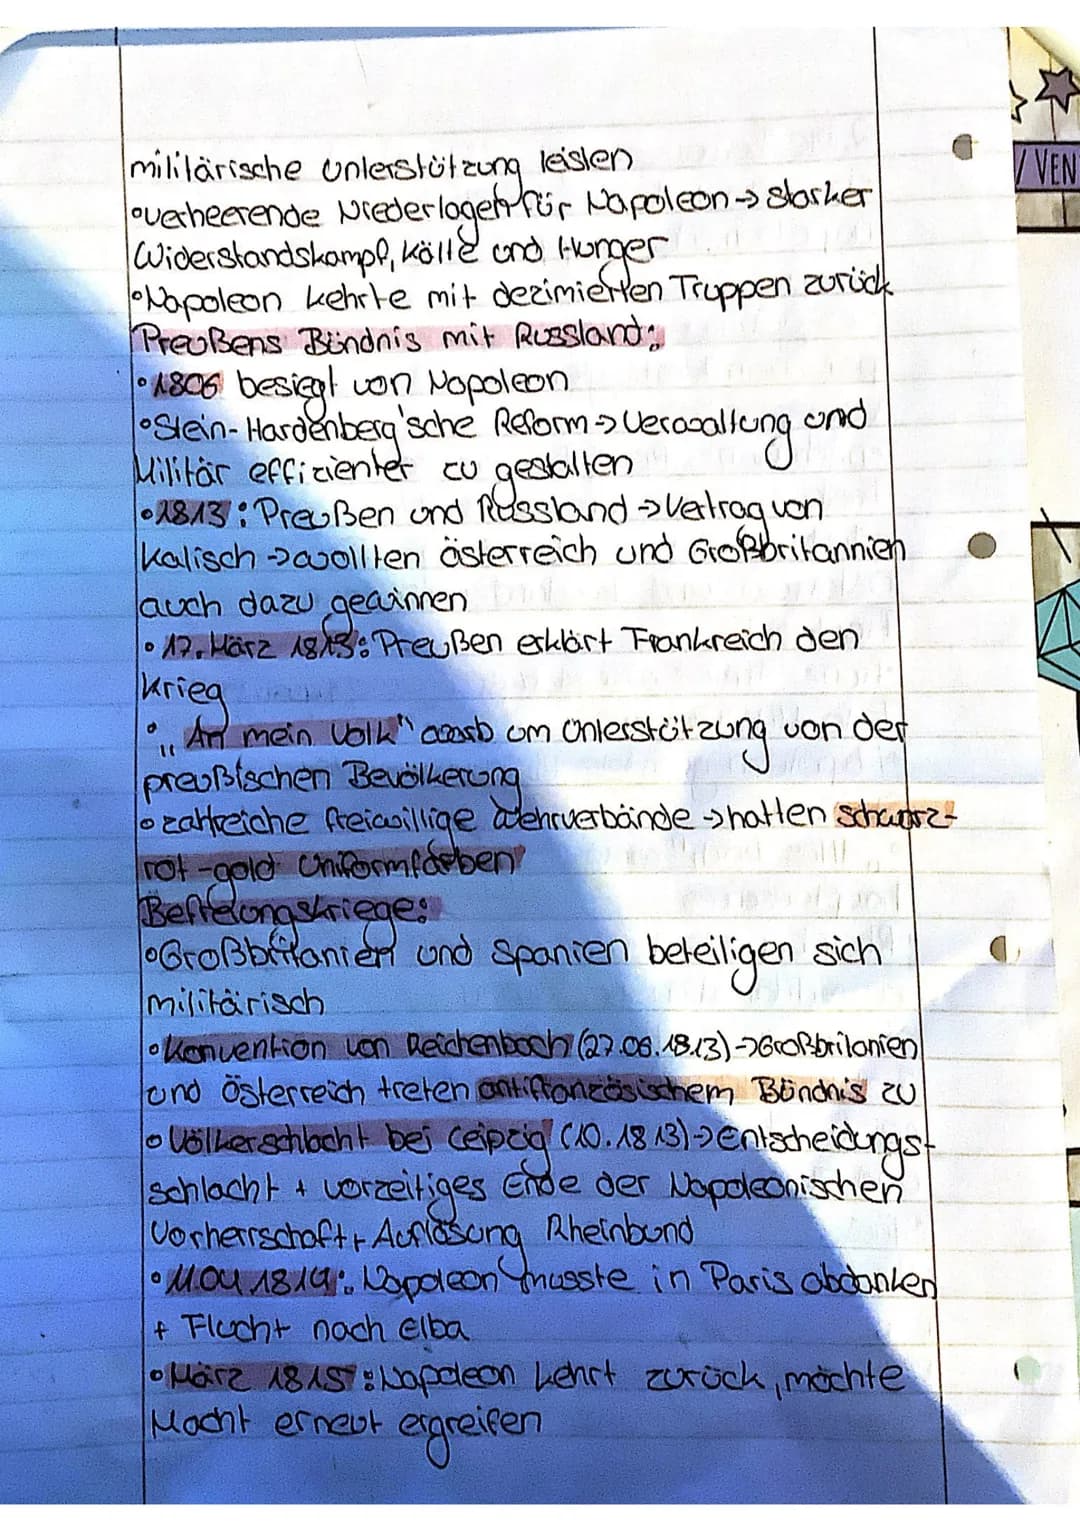 militärische Unterstützung leisten
•verheerende Niederlagen für Napoleon → starker
Widerstandskampf, Kälte und Hunger
•Napoleon kehrte mit dezimierten Truppen zurück
Preußens Bündnis mit Russland:
•1806 besiegt von Napoleon
•Stein-Hardenberg'sche Reform → Verwaltung und
Militär effizienter zu gestalten
•1813: Preußen und Russland → Vertrag von
Kalisch → wollten Österreich und Großbritannien
auch dazu gewinnen
•17. März 1813: Preußen erklärt Frankreich den
Krieg
•„An mein Volk" warb um Unterstützung von der
preußischen Bevölkerung
•zahlreiche freiwillige Wehrverbände → hatten schwarz-
rot-gold Uniformfarben
Befreiungskriege:
•Großbritanien und Spanien beteiligen sich
militärisch
•Konvention von Reichenbach (27.06.1813) → Großbritanien
und Österreich treten antifranzösischem Bündnis zu
•Völkerschlacht bei Leipzig (10.1813) → Entscheidungs-
schlacht + vorzeitiges Ende der Napoleonischen
Vorherrschaft + Auflösung Rheinbund
•11.04.1814: Napoleon musste in Paris abdanken
+ Flucht nach Elba
•März 1815: Napoleon kehrt zurück, möchte
Macht erneut ergreifen
VEN